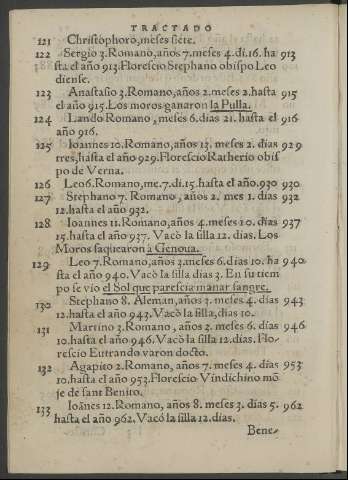 TRACTADO
121 Christophoro, meses siete.
122 Sergio 3. Romano, años 7. meses 4. di. 16. ha 913
sta el año 913. Florescio Stephano obispo Leo
diense.
123 Anastasio 3. Romano, años 2. mes 2. hasta 915
el año 915. Los moros ganaron la Pulla.
124 Lando Romano, meses 6. dias 21. hasta el 916
año 916.
125 Ioannes 10. Romano, años 13. meses 2. dias 929
tres, hasta el año 929. Florescio Ratherio obis
po de Verna.
126 Leo 6. Romano, me. 7. di. 15. hasta el año. 930 930
127 Stephano 7. Romano, años 2. mes 1. dias 932
12. hasta el año 932.
128 Ioannes 11. Romano, años 4. meses 10. dias 937
15. hasta el año 937. Vacò la silla 12. dias. Los
Moros saquearon à Genoua.
129 Leo 7. Romano, años 3. meses 6. dias 10. ha 940
sta el año 940. Vacò la silla dias 3. En su tiem
po se vio el Sol que parescia manar sangre.
130 Stephano 8. Aleman, años 3. meses 4. dias 943
12. hasta el año 943. Vacò la silla, dias 10.
131 Martino 3. Romano, años 3. meses 6. dias 946
10. hasta el año 946. Vacò la silla 12. dias. Flo-
rescio Eutrando varon docto.
132 Agapito 2. Romano, años 7. meses 4. dias 953
10. hasta el año 953. Florescio Vindichino mõ
je de sant Benito.
133 Ioãnes 12. Romano, años 8. meses 3. dias 5. 962
hasta el año 962. Vacó la silla 12. dias.
Bene-